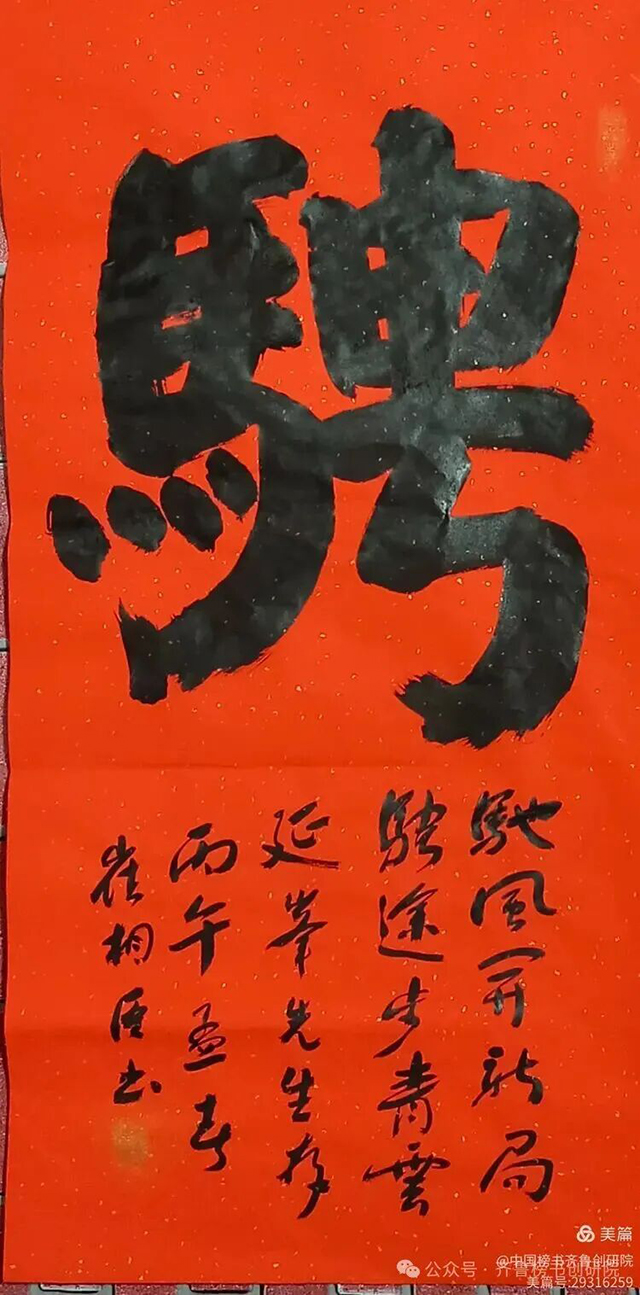 騁
馳風開新局
騁途步青雲
延峯先生存
丙午孟春
崔相臣书
美篇
@中国榜书齐鲁创研院
公众号 · 齐鲁榜书创研院
美篇号:29316259